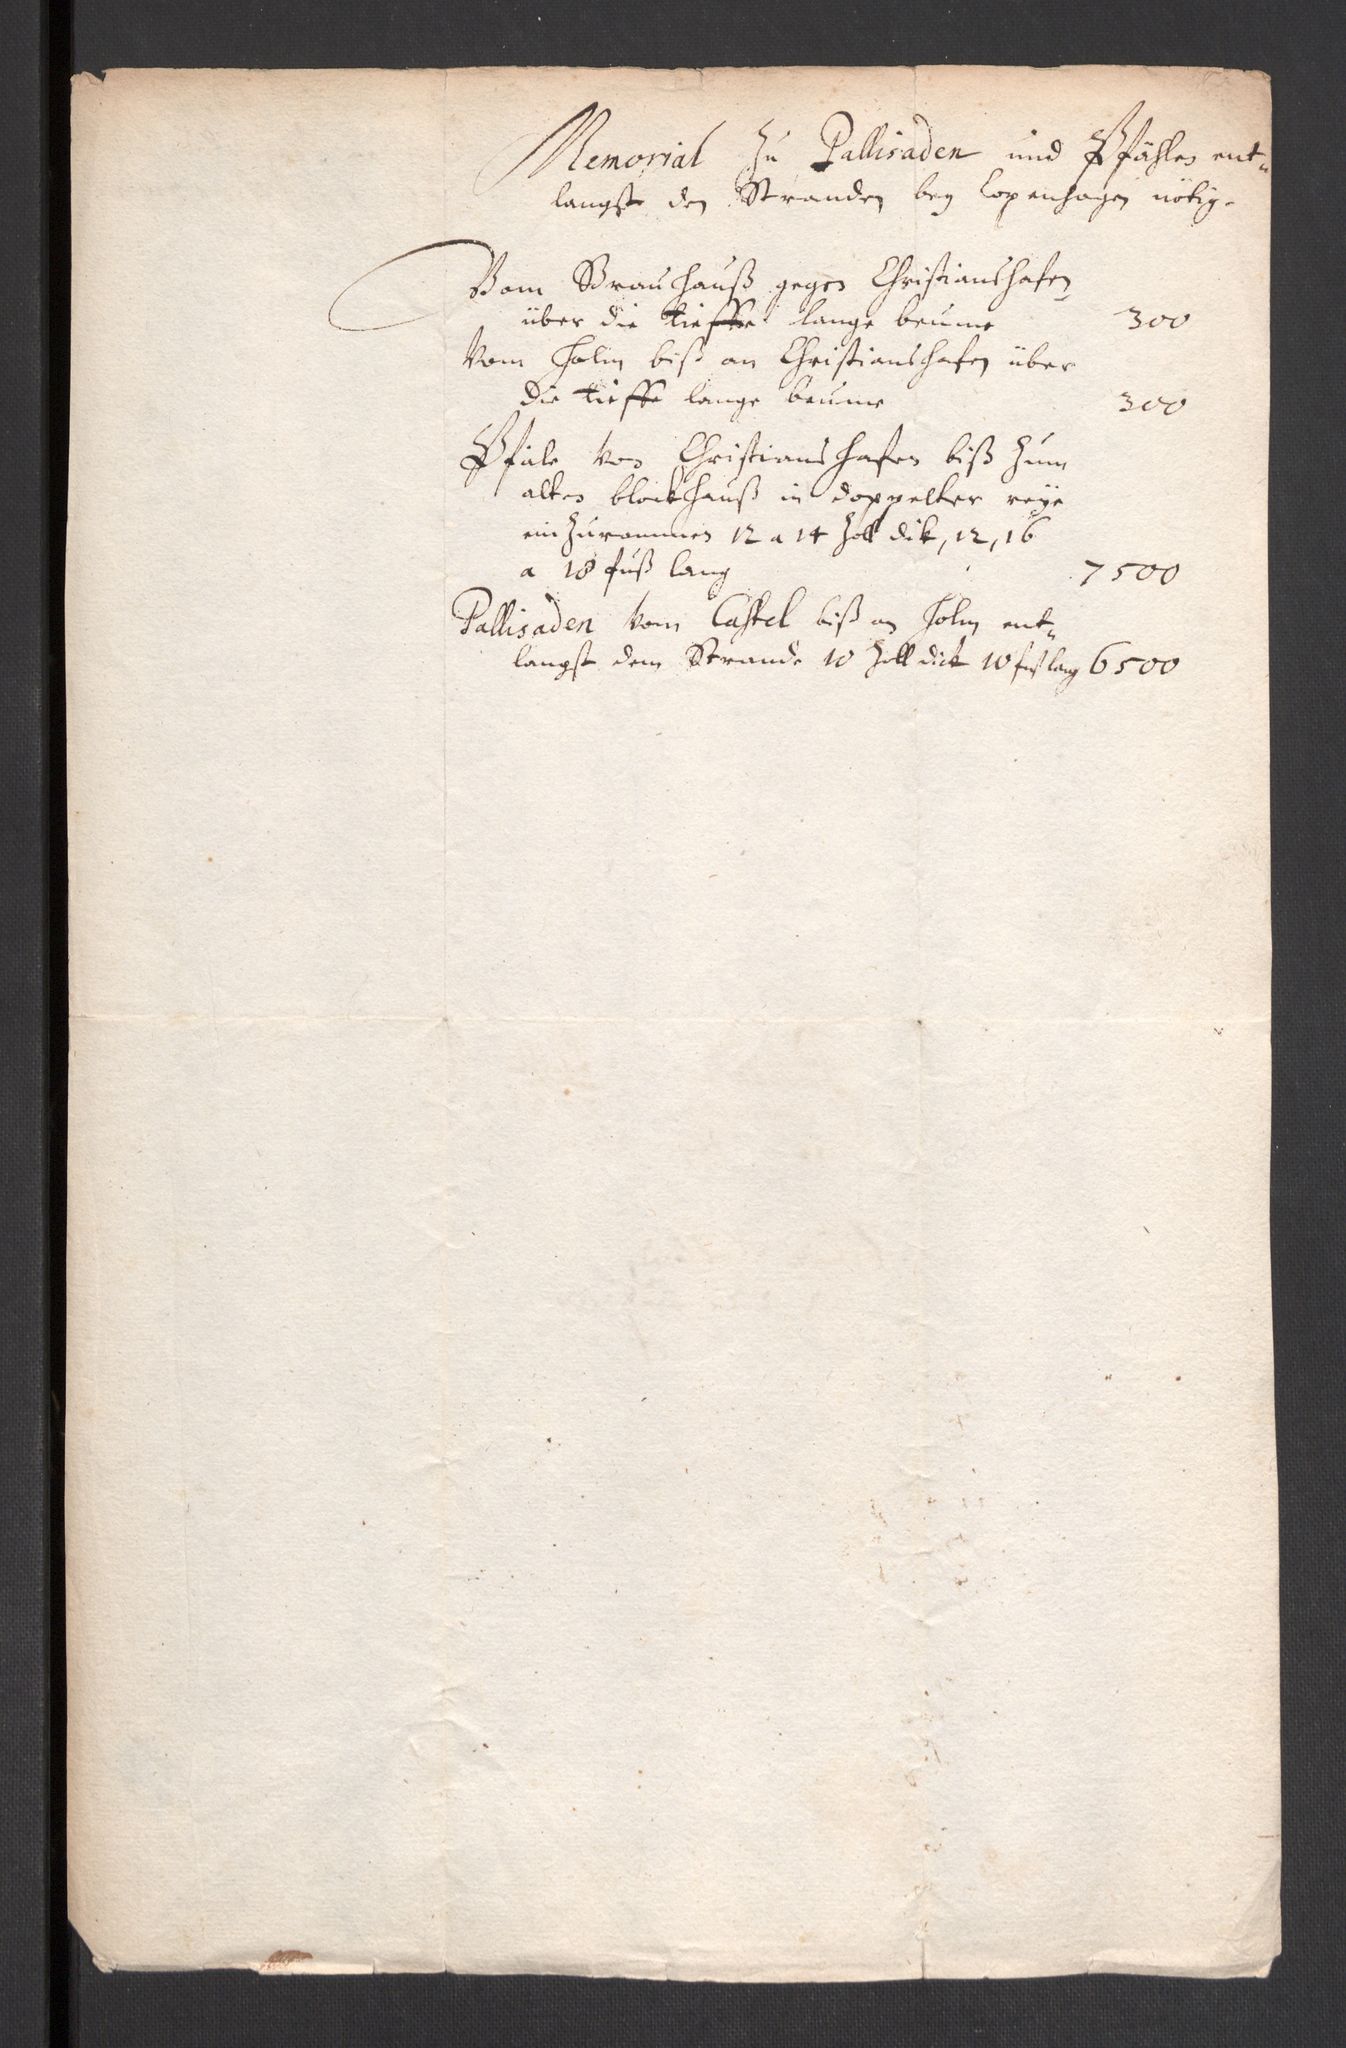 Memorial zu Pallisaden und Pfählen ent-
langst den Stranden bey Copenhagen nötig.
Vom Brauhauß gegen Christianshafen
über die tieffe lange beume 300
Vom Holm biß an Christianshafen über
die tieffe lange beume 300
Pfäle von Christianshafen biß zum
alten blockhauß in doppelter reye
einzurammen 12 a 14 Zoll dik, 12, 16
a 18 fuß lang 7500
Pallisaden vom Castel biß an Holm ent-
langst dem Strande 10 Zoll dick 10 fuß lang 6500